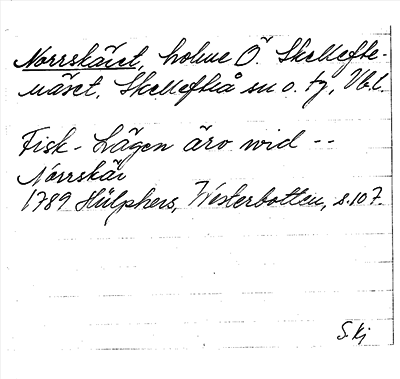 Norrskäret, holme Ö. Skellefte-
näset, Skellefteå sn o. tg, Vbl.
Fisk-Lägen äro wid --
Norrskär
1789 Hülphers, Westerbotten, s. 107.
S. Kj